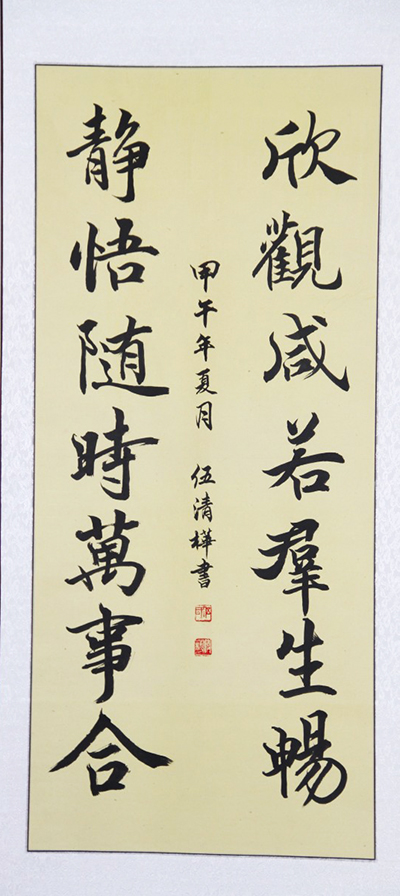 欣觀咸若羣生暢
静悟隨時萬事合
甲午年夏月 伍清樺書